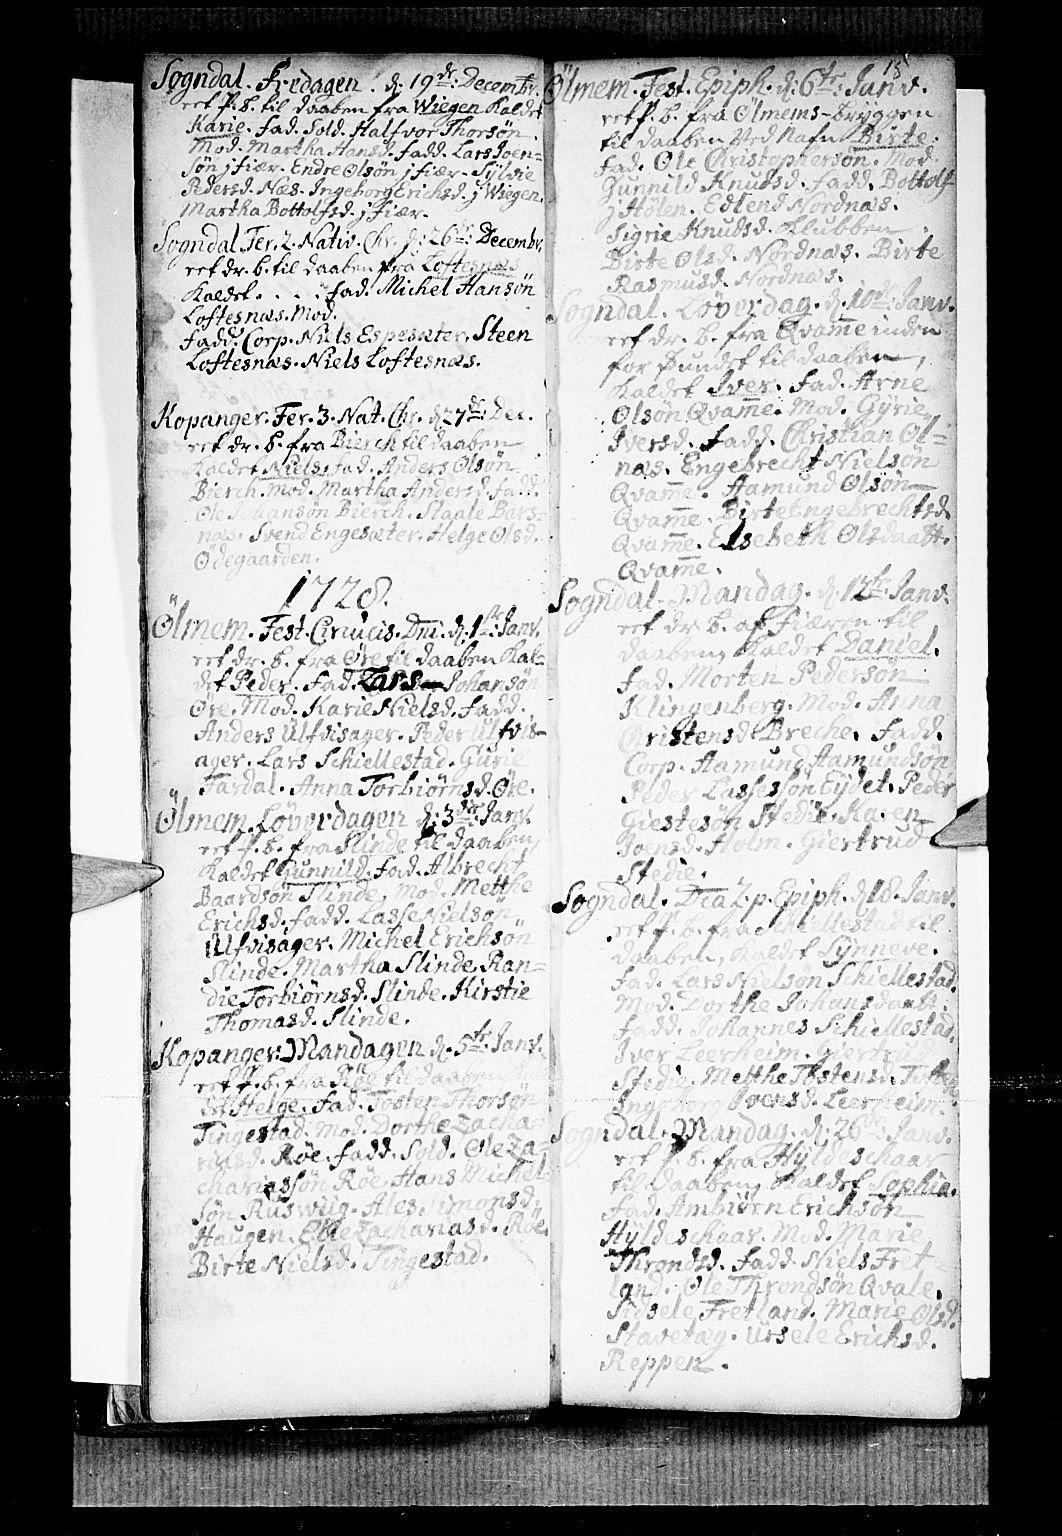 Sogndal. Fredagen. d: 19de: Decembr.
eet p. b. til daaben fra Wiegen Kaldet
Karie. Fad. Sold. Halfvor Thorsøn.
Mod. Martha Hansd. Fadd. Lars Joen-
søn j Fiær. Endre Olsøn j Fiær. Sÿlvie
Pedersd. Næs. Ingeborg Erichsd. j Wiegen.
Martha Bottolfsd. j Fiær.
Sogndal. Fer. 2. Nativ. Chr. d: 26de: Decembr.
eet dr. b. til daaben fra Loftesnæs
Kaldet . . . . Fad. Michel Hansøn
Loftesnæs. Mod.
Fadd. Corp. Niels Espesæter. Steen
Loftesnæs. Niels Loftesnæs.
Kopanger. Fer. 3. Nat. Chr. d: 27de: Dec.
eet dr. b. fra Bierch til daaben
Kaldet Niels. Fad. Anders Olsøn
Bierch. Mod. Martha Andersd. Fadd.
Ole Johansøn Bierch. Staale Bars-
næs. Svend Engesæter. Helge Olsd.
Ødegaarden.
1728.
Ölmem. Fest. Circucis. Dni. d: 1ste: Janv.
eet dr. b. fra Øre til daaben Kal-
det Peder. Fad. Lars Johansøn
Øre. Mod. Karie Nielsd. Fadd.
Anders Ulfvisager. Peder Ulfvis-
ager. Lars Schiellestad. Gurie
Fardal. Anna Torbiørnsd. Øre.
Ölmem. Løverdagen d: 3die: Janv.
eet p. b. fra Slinde til daaben
Kaldet Gunnild. Fad. Albrecht
Baardsøn Slinde. Mod. Metthe
Erichsd. Fadd. Lasse Nielsøn
Ulfvisager. Michel Erichsøn
Slinde. Martha Slinde. Ran-
die Torbiørnsd. Slinde. Kirstie
Thomasd. Slinde.
Kopanger: Mandagen d: 5te: Janv.
eet p. b. fra Røe til daaben
det Helge. Fad. Tosten Thorsøn
Tingestad. Mod. Dorthe Zacha-
riasd. Røe. Fadd. Sold. Ole Za-
chariassøn Røe. Hans Michel-
søn Ruswiig. Ales Simonsd.
Haugen. Zachariasd. Røe.
Birte Nielsd. Tingestad.
15
Ölmem. Fest. Epiph. d: 6te: Janv.
eet p. b. fra Ölmems-brÿggen
til daaben Ved Nafn Birte.
Fad. Ole Christophersøn. Mod.
Gunnild Knudsd. Fadd. Bottolf
j Hølen. Edlend Nordnæs.
Sigrie Knudsd. Klubben.
Birte Olsd. Nordnæs. Birte
Rasmusd. Nordnæs.
Sogndal. Løverdag. d: 10de: Janv.
eet dr. b. fra Qvamme inden
for Sundet til daaben,
Kaldet Iver. Fad. Arne
Olsøn Qvamme. Mod. Gÿrie
Iversd. Fadd. Christian Øl-
næs. Engebrecht Nielsøn
Qvamme. Aamund Olsøn
Qvamme. Birte Engebrechtsd.
Qvamme. Elsebeth Olsdaatt.
Qvamme.
Sogndal. Mandag. d: 12te: Janv.
eet dr. b. af Fiæren til
daaben, Kaldet Daniel.
Fad. Morten Pedersøn
Klingenberg. Mod. Anna
Christensd. Breche. Fadd.
Corp. Aamund Aamundsøn
Peder Lassessøn Eÿdet. Peder
Giestesøn Stedie. Karen
Joensd. Holm. Giertrud
Stedie.
Sogndal. Dca 2. p. Epiph. d: 18. Janv.
eet p. b. fra Schiellestad til
daaben, Kaldet Sÿnneve.
Fad. Lars Nielsøn Schiellestad.
Mod. Dorthe Johansdaatt.
Fadd. Johannes Schiellestad.
Iver Leerheim. Giertr.
Stedie. Metthe Tostensd.
Ingeborg Joensd. Leerheim.
Sogndal. Mandag. d: 26de: Janv.
eet p. b. fra Hÿldeschaar
til daaben, Kaldet Sophia.
Fad. Ambiørn Erichsøn
Hÿldeschaar. Mod. Marie
Throndsd. Fadd. Niels Fret
land. Ole Throndsøn Qvale.
Sidsele Fretland. Marie Olsd.
Stavetæg. Ursele Erichsd.
Reppen.